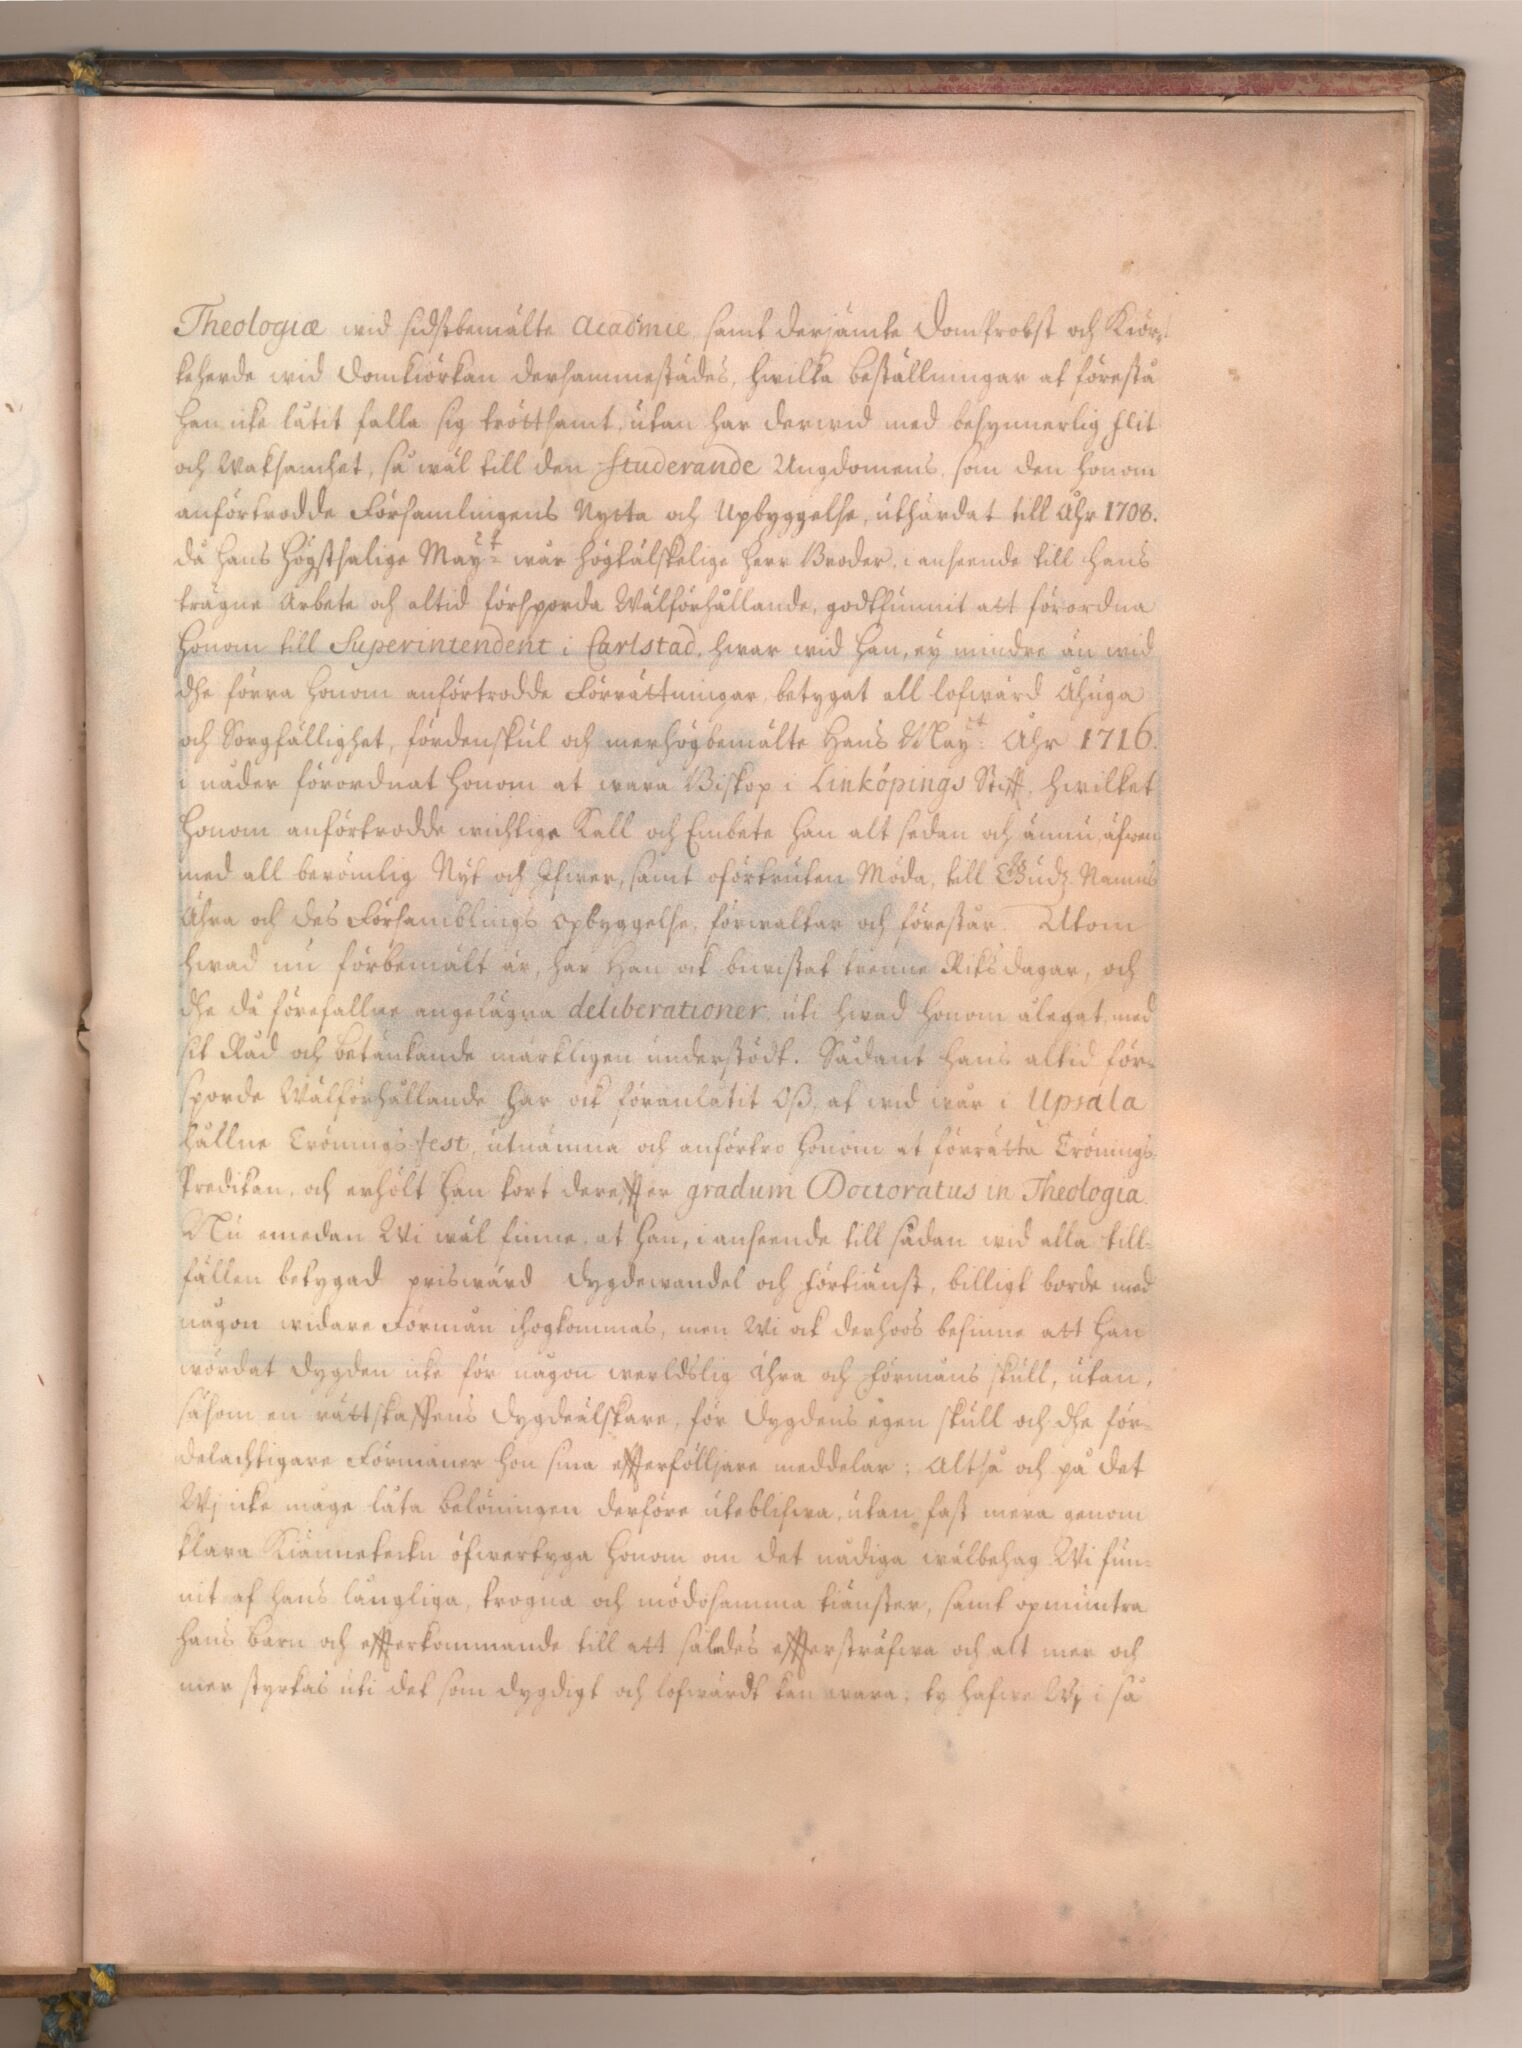 Theologiæ wid sidstbemälte Academie samt derjämte DomProbst och Kiör-
keherde wid Domkiörkan dersammestädes, hwilka beställningar at förestå
han icke låtit falla sig tröttsamt, utan har derwid med besynnerlig flit
och Waksamhet, så wäl till den studerande Ungdomens, som den honom
anförtrodde Församlingens Nytta och Upbyggelse, uthärdat till Åhr 1708.
då Hans Högsthalige May:tt wår högtälskelige Herr Broder, i anseende till Hans
trägne Arbete och altid försporda Wälförhållande, godtfunnit att förordna
Honom till Superintendent i Carlstad, hwar wid Han, ey mindre än wid
dhe förra Honom anförtrodde Förrättningar, betygat all lofwärd Åhuga
och Sorgfällighet, fördenskul och merhögbemälte Hans May:tt Åhr 1716.
i nåder förordnat Honom at wara Biskop i Linköpings Stifft, hwilket
Honom anförtrodde wichtige Kall och Embete Han alt sedan och ännu, äfwen
med all berömlig Nyt och Ifwer, samt oförtruten Möda, till Gudz Namns
Ähra och des Församblings opbyggelse, förwaltar och förestår. Utom
hwad nu förbemält är, har Han ock biwistat trenne Riksdagar, och
dhe då förefallne angelägna deliberationer, uti hwad Honom ålegat, med
sit Råd och betänkande märkligen understödt. Sådant Hans altid för-
sporde Wälförhållande har ock föranlåtit Oß, at wid wår i Upsala
hållne Cröningsfest, utnämna och anförtro Honom at förrätta Crönings-
Predikan, och erhölt Han kort dereffter gradum Doctoratus in Theologia.
Nu emedan Wi wäl finne, at Han, i anseende till sådan wid alla till-
fällen betygad priswärd dygdewandel och förtiänst, billigt borde med
någon widare Förmån ihogkommas, men Wi ock derhoos besinne att Han
wördat dygden icke för någon werldslig Ähra och förmåns skull, utan,
såsom en rättskaffens dygdeälskare, för dygdens egen skull och dhe för-
delachtigare Förmåner hon sina effterfölljare meddelar; Altså och på det
Wj icke måge låta belöningen derföre utebliswa, utan fast mera genom
klara Kiännetekn öfwertyga Honom om det nådiga wälbehag Wi fun-
nit af Hans långliga, trogna och mödosamma tiänster, samt opmuntra
Hans barn och effterkommande till att således effterstråfwa och alt mer och
mer styrkas uti det som dygdigt och lofwärdt kan wara; ty hafwe Wj i så